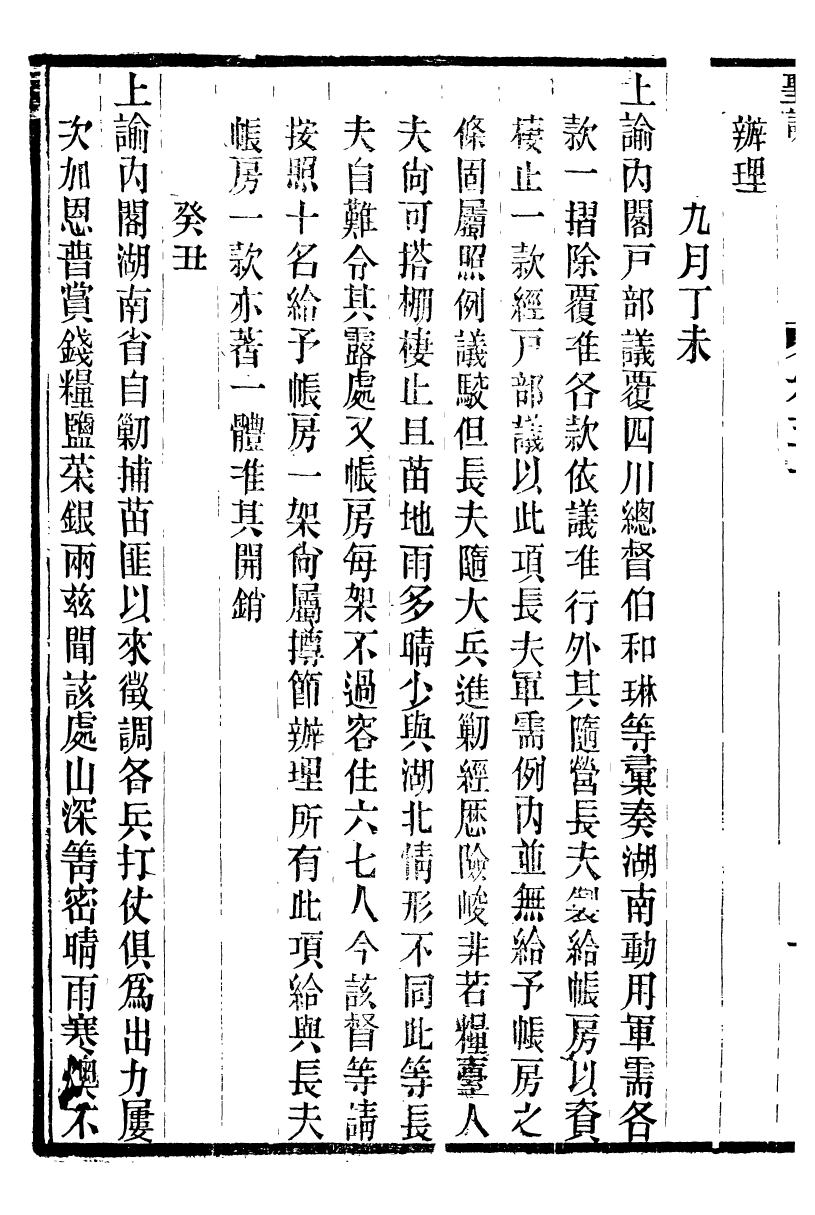 辦理
九月丁未
上諭內閣戸部議覆四川總督伯和琳等彙奏湖南動用軍需各
款一摺除覆准各款依議准行外其隨營長夫製給帳房以資
棲止一款經戸部議以此項長夫軍需例內並無給予帳房之
條固屬照例議駮但長夫隨大兵進勦經歷險峻非若糧臺人
夫尙可搭棚棲止且苗地雨多晴少與湖北情形不同此等長
夫自難令其露處又帳房每架不過容住六七人今該督等請
按照十名給予帳房一架尙屬撙節辦理所有此項給與長夫
帳房一款亦著一體准其開銷
癸丑
上諭內閣湖南省自勦捕苗匪以來徵調各兵打仗俱爲出力屢
次加恩普賞錢糧鹽菜銀兩茲聞該處山深箐密晴雨寒燠不